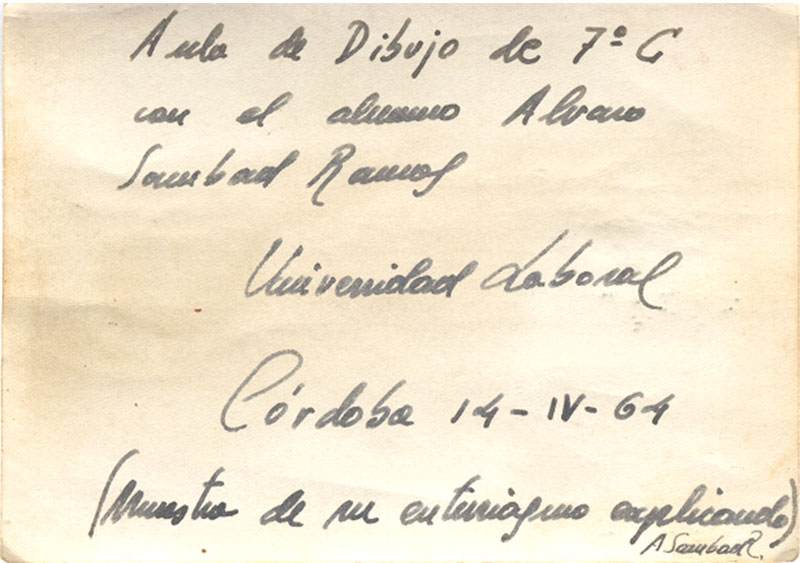 Aula de Dibujo de 7º C
con el alumno Alvaro
Sambad Ramos
Universidad Laboral
Córdoba 14-IV-64
(Muestra de su entusiasmo explicando)
A Sambad R.